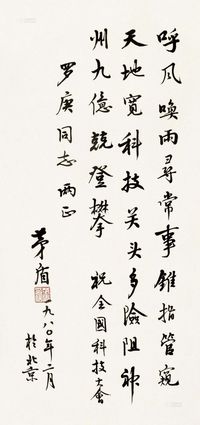 呼风喚雨尋常事錐指管窺
天地寬科技关头多險阻神
州九億競登攀 祝全國科技大會
罗庚同志 两正
茅盾 一九八〇年二月
於北京